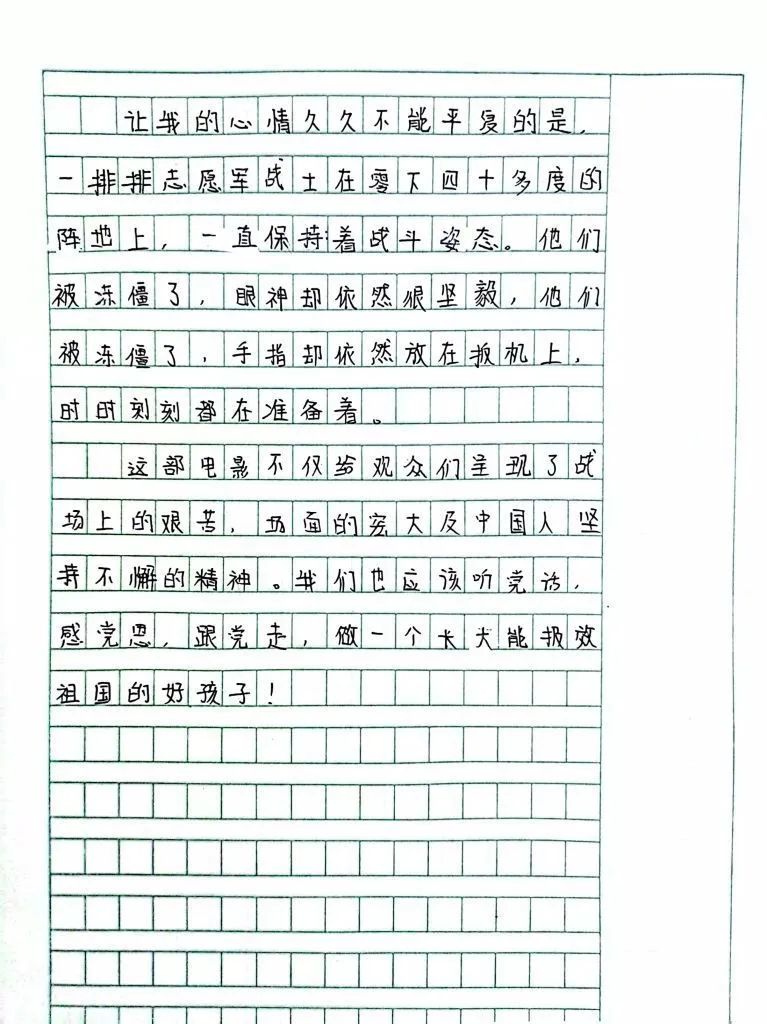 让我的心情久久不能平复的是，
一排排志愿军战士在零下四十多度的
阵地上，一直保持着战斗姿态。他们
被冻僵了，眼神却依然很坚毅，他们
被冻僵了，手指却依然放在扳机上，
时时刻刻都在准备着。
这部电影不仅给观众们呈现了战
场上的艰苦，场面的宏大及中国人坚
持不懈的精神。我们也应该听党话，
感党恩，跟党走，做一个长大能报效
祖国的好孩子！